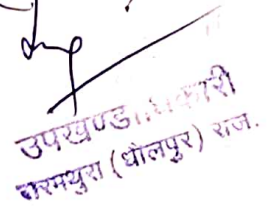 उपखण्ड अधिकारी
सरमथुरा (धौलपुर) राज.